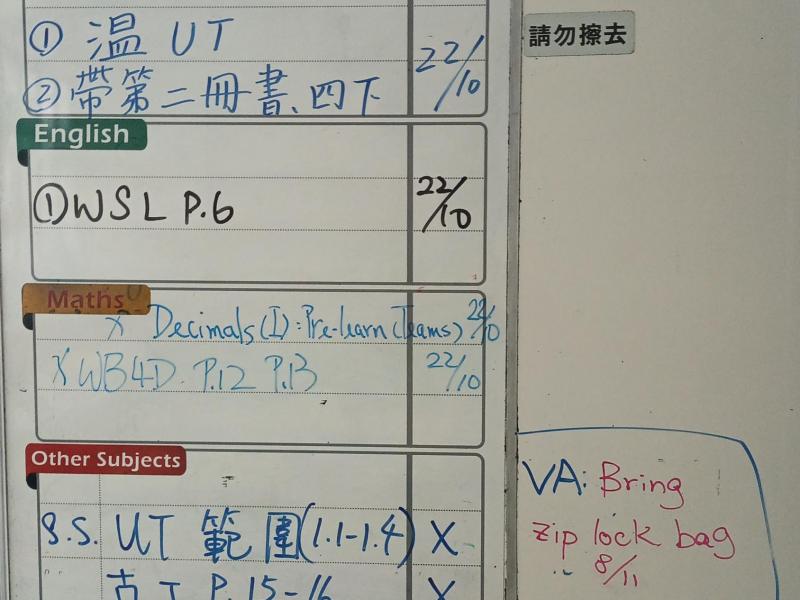 ① 溫 UT 22/10
② 帶第二冊書、四下
請勿擦去
English
① WSL P.6 22/10
Maths
x Decimals(I): Pre-learn (Teams) 22/10
x WB4D P.12 P.13 22/10
Other Subjects
S.S. UT 範圍(1.1-1.4) X
P.15-16 X
VA: Bring
zip lock bag
8/11